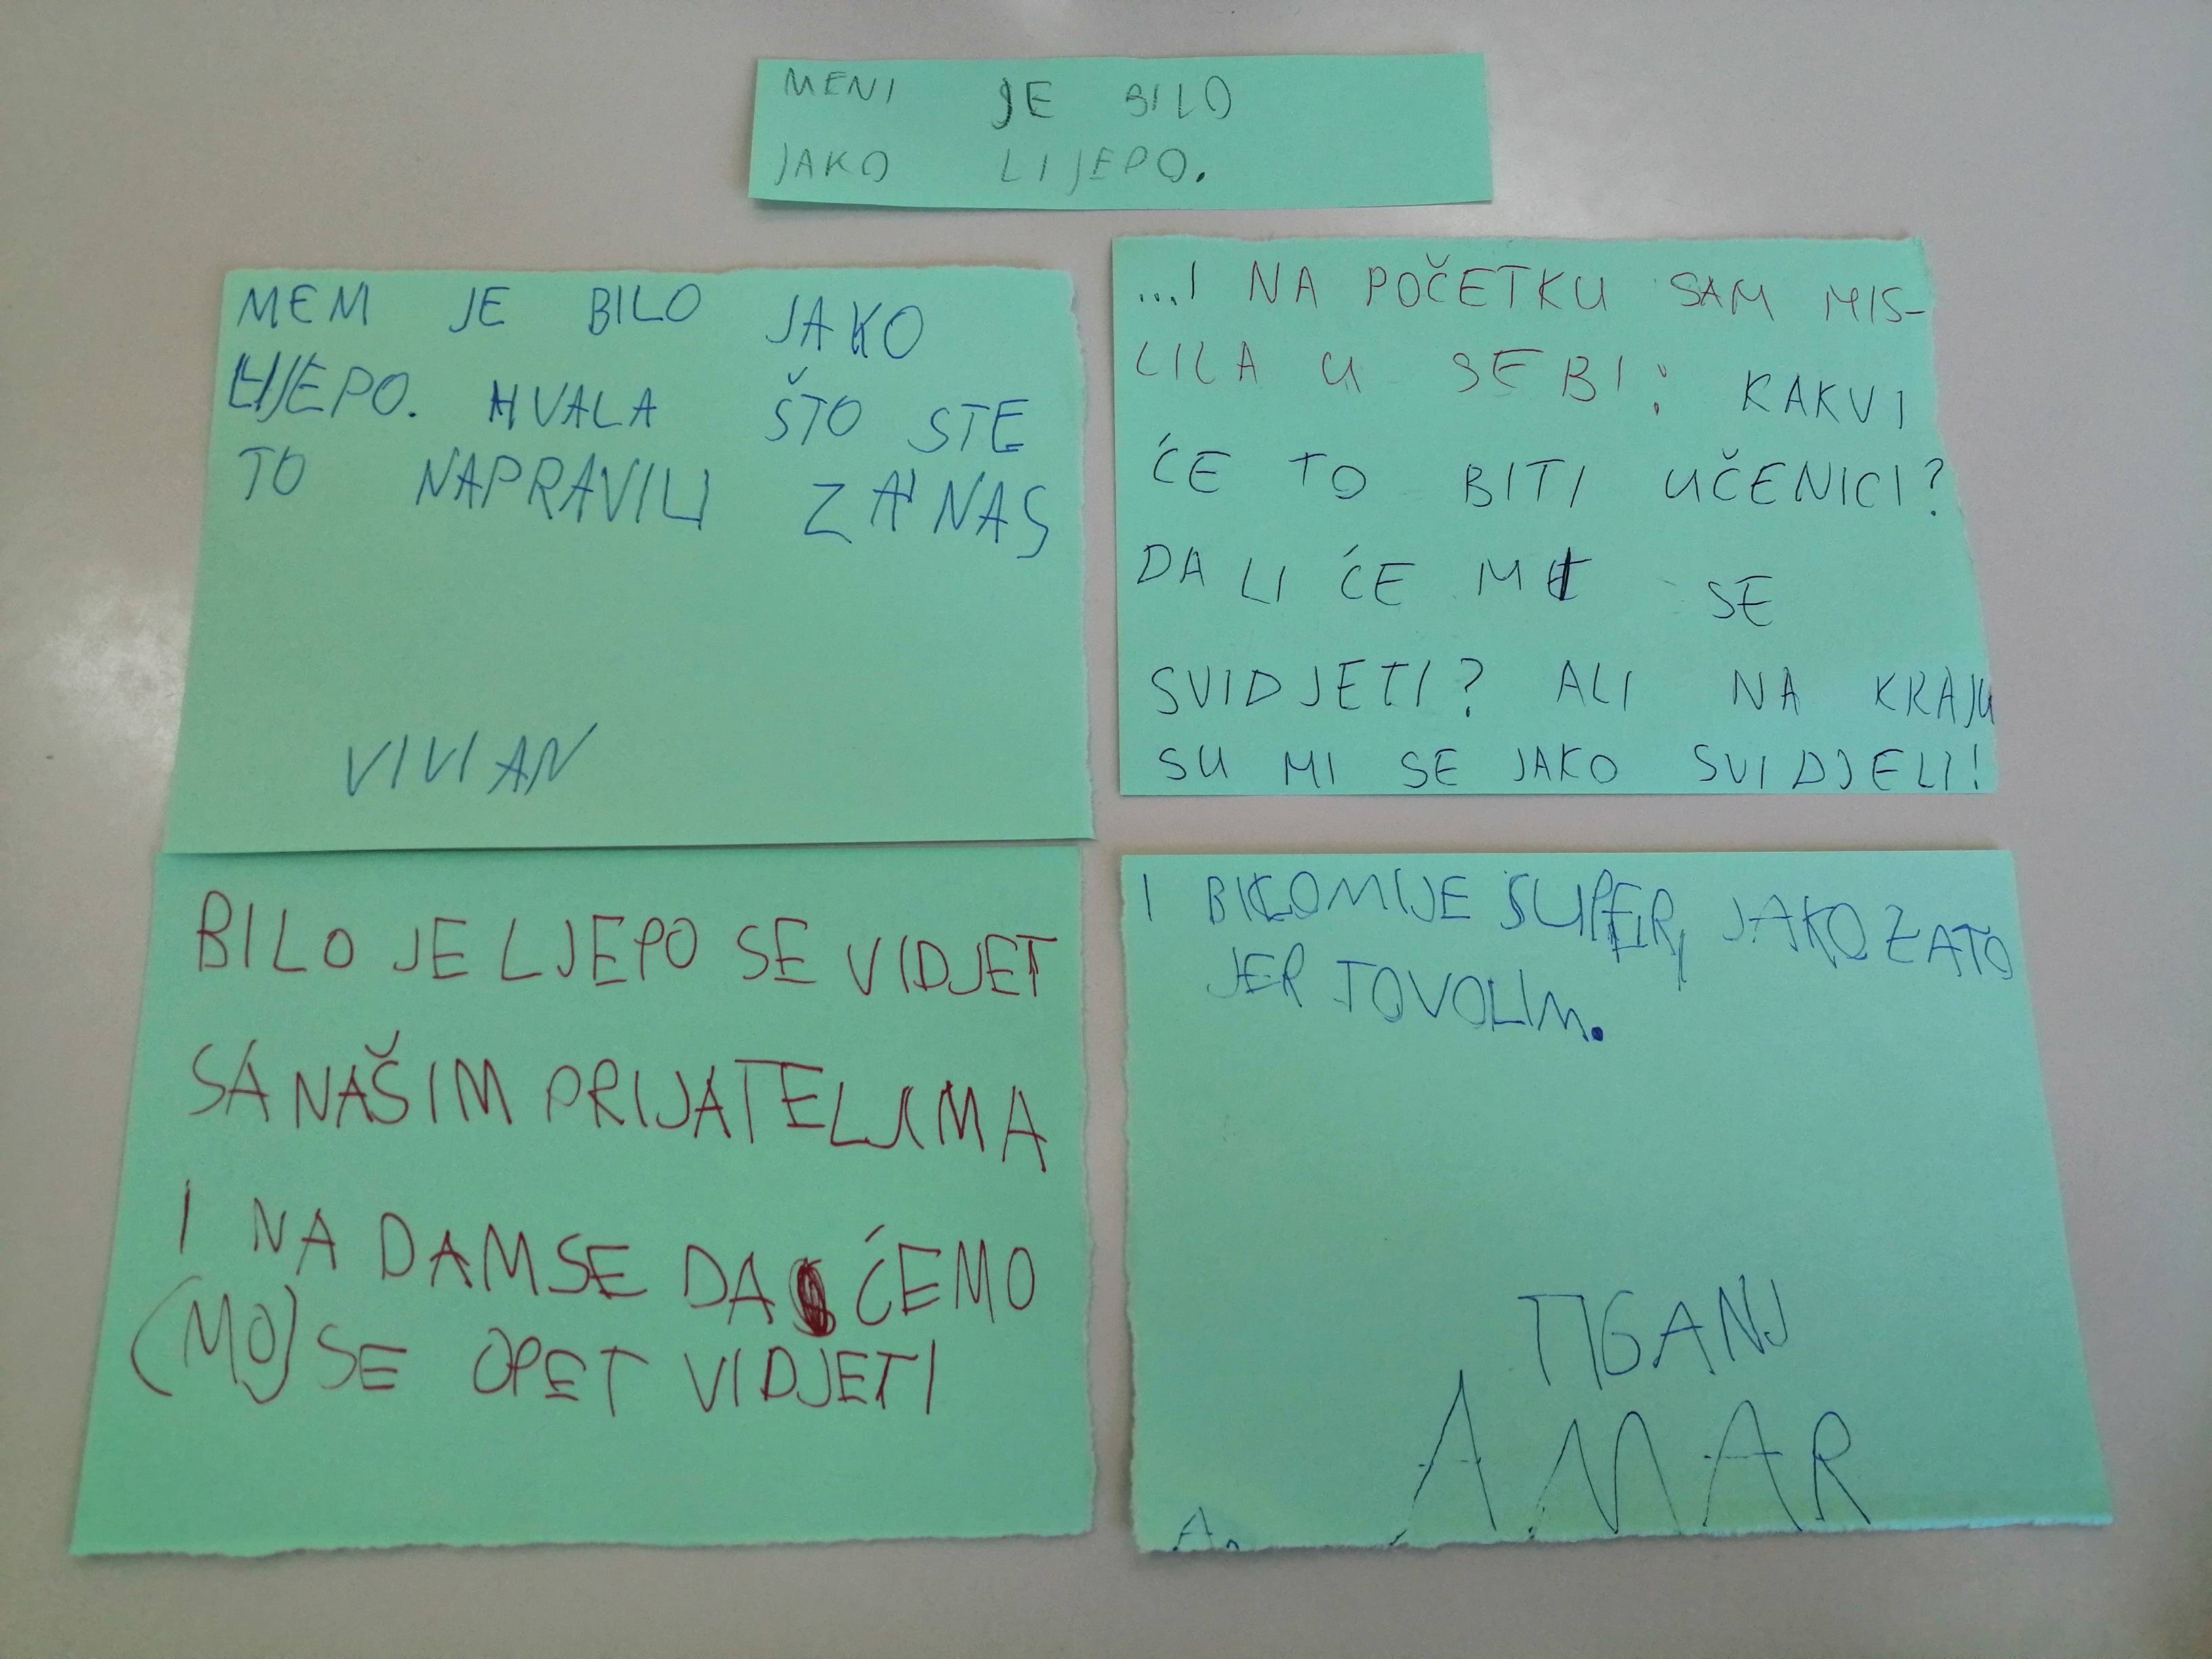 MENI JE BILO
JAKO LIJEPO.
MENI JE BILO JAKO
LIJEPO. HVALA ŠTO STE
TO NAPRAVILI ZA NAS
VIVIAN
...I NA POČETKU SAM MIS-
LILA U SEBI: KAKVI
ĆE TO BITI UČENICI?
DA LI ĆE MI SE
SVIDJETI? ALI NA KRAJU
SU MI SE JAKO SVIDJELI!
BILO JE LJEPO SE VIDJET
SA NAŠIM PRIJATELJIMA
I NA DAM SE DA ĆEMO
(MO) SE OPET VIDJETI
I BILO MI JE SUPER, JAKO ZATO
JER TO VOLIM.
TIGANJ
AMAR
A.